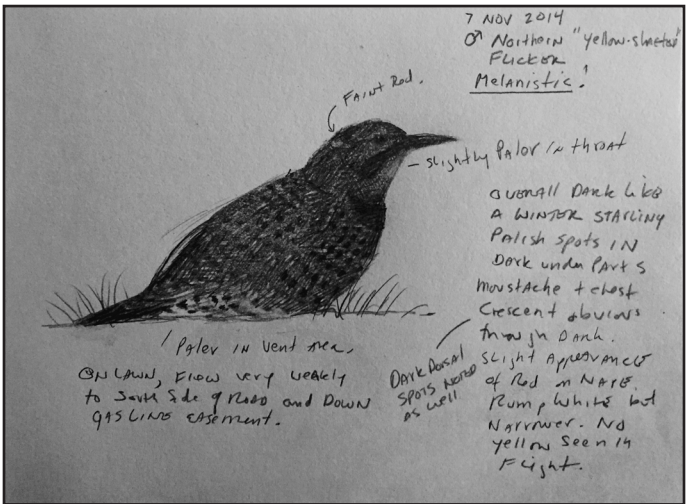 7 NOV 2014
♂ Northern "yellow-shafted"
Flicker
Melanistic!
Faint Red.
- slightly Paler in throat
overall Dark like
A winter starling
Palish spots in
Dark under Parts
moustache + chest
Crescent obvious
through Dark.
Slight Appearance
of Red on Nape.
Rump White but
Narrower. No
yellow Seen in
Flight.
Dark Dorsal
spots noted
as well
Paler in vent area.
ON LAWN, Flow very weakly
to South Side of Road and Down
GASLINE EASEMENT.